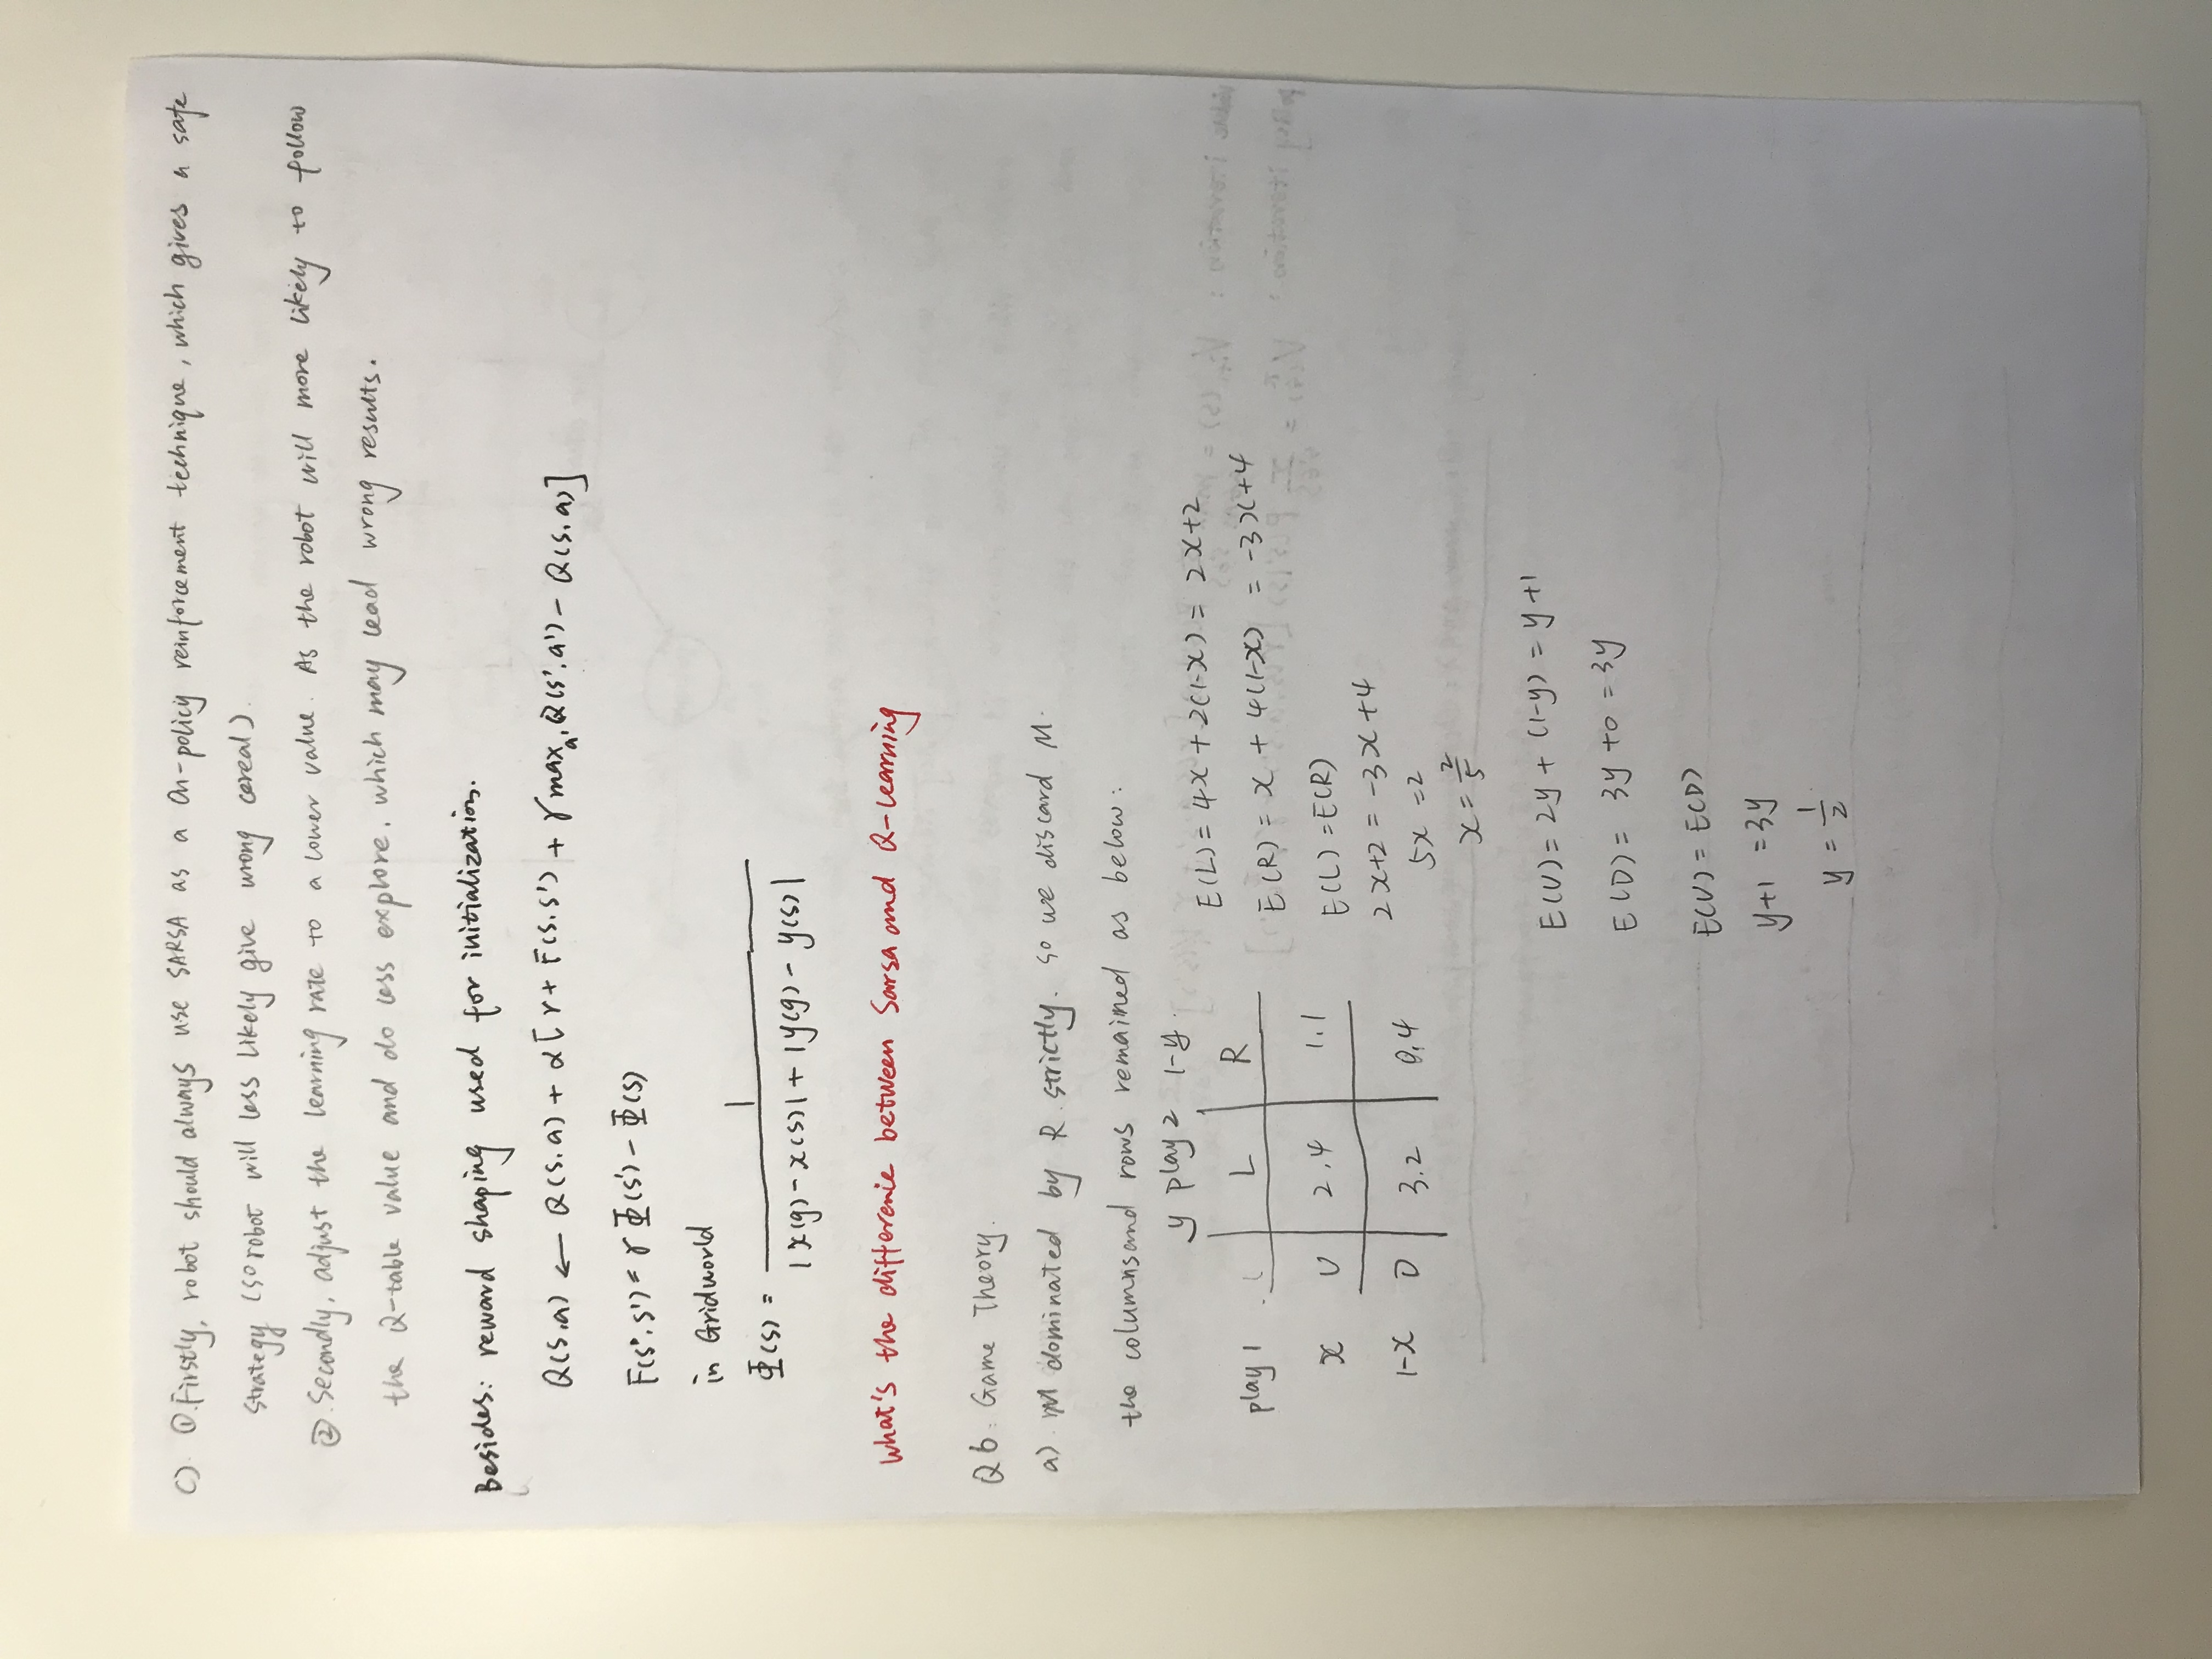 C). ①.Firstly, robot should always use SARSA as a On-policy reinforcement technique, which gives a safe
strategy (so robot will less likely give wrong cereal).
②.Secondly, adjust the learning rate to a lower value. As the robot will more likely to follow
the Q-table value and do less explore, which may lead wrong results.
Besides: reward shaping used for initialization.
Q(s,a) ← Q(s,a) + α[r + F(s,s') + γ max_a' Q(s',a') - Q(s,a)]
F(s,s') = γ Φ(s') - Φ(s)
in Gridworld
Φ(s) = 1 / |x(g) - x(s)| + |y(g) - y(s)|
what's the difference between Sarsa and Q-learning
Q6: Game Theory.
a). M dominated by R strictly. so we discard M.
the columns and rows remained as below:
y play 2 1-y
play 1 L R
x U 2,4 1,1
1-x D 3,2 0,4
E(L) = 4x + 2(1-x) = 2x+2
E(R) = x + 4(1-x) = -3x+4
E(L) = E(R)
2x+2 = -3x+4
5x = 2
x = 2/5
E(U) = 2y + (1-y) = y+1
E(D) = 3y + 0 = 3y
E(U) = E(D)
y+1 = 3y
y = 1/2